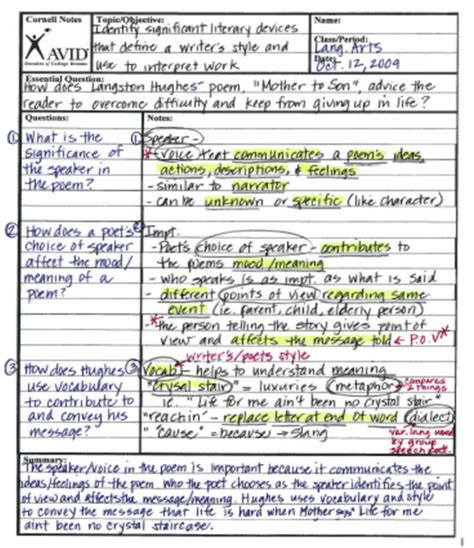 Cornell Notes
AVID
Topic/Objective:
Identify significant literary devices
that define a writer's style and
use to interpret work
Name:
Class/Period:
Lang. Arts
Date:
Oct. 12, 2009
Essential Question:
How does Langston Hughes' poem, "Mother to Son", advice the
reader to overcome difficulty and keep from giving up in life?
Questions:
Notes:
① What is the
significance of
the speaker in
the poem?
① Speaker -
* voice that communicates a poem's ideas,
actions, descriptions, & feelings
- similar to narrator
- can be unknown or specific (like character)
② How does a poet's
choice of speaker
affect the mood/
meaning of a
poem?
② Impt.
- Poet's choice of speaker - contributes to
the poems mood/meaning
- who speaks is as impt. as what is said
- different points of view regarding same
event (ie. parent, child, elderly person)
* - the person telling the story gives point of
view and affects the message told ← P.O.V *
③ How does Hughes
use vocabulary
to contribute to
and convey his
message?
writer's/poets style
③ Vocab - helps to understand meaning
"crysal stair" = luxuries (metaphor) * compares
2 things
ie. "Life for me ain't been no crystal stair"
"reachin" - replace letter at end of word (dialect)
"'cause" = because → slang
var. lang used
by group
Summary:
The speaker/voice in the poem is important because it communicates the
ideas/feelings of the poem. Who the poet chooses as the speaker identifies the point
of view and affects the message/meaning. Hughes uses vocabulary and style
to convey the message that life is hard when Mother says "Life for me
aint been no crystal staircase.